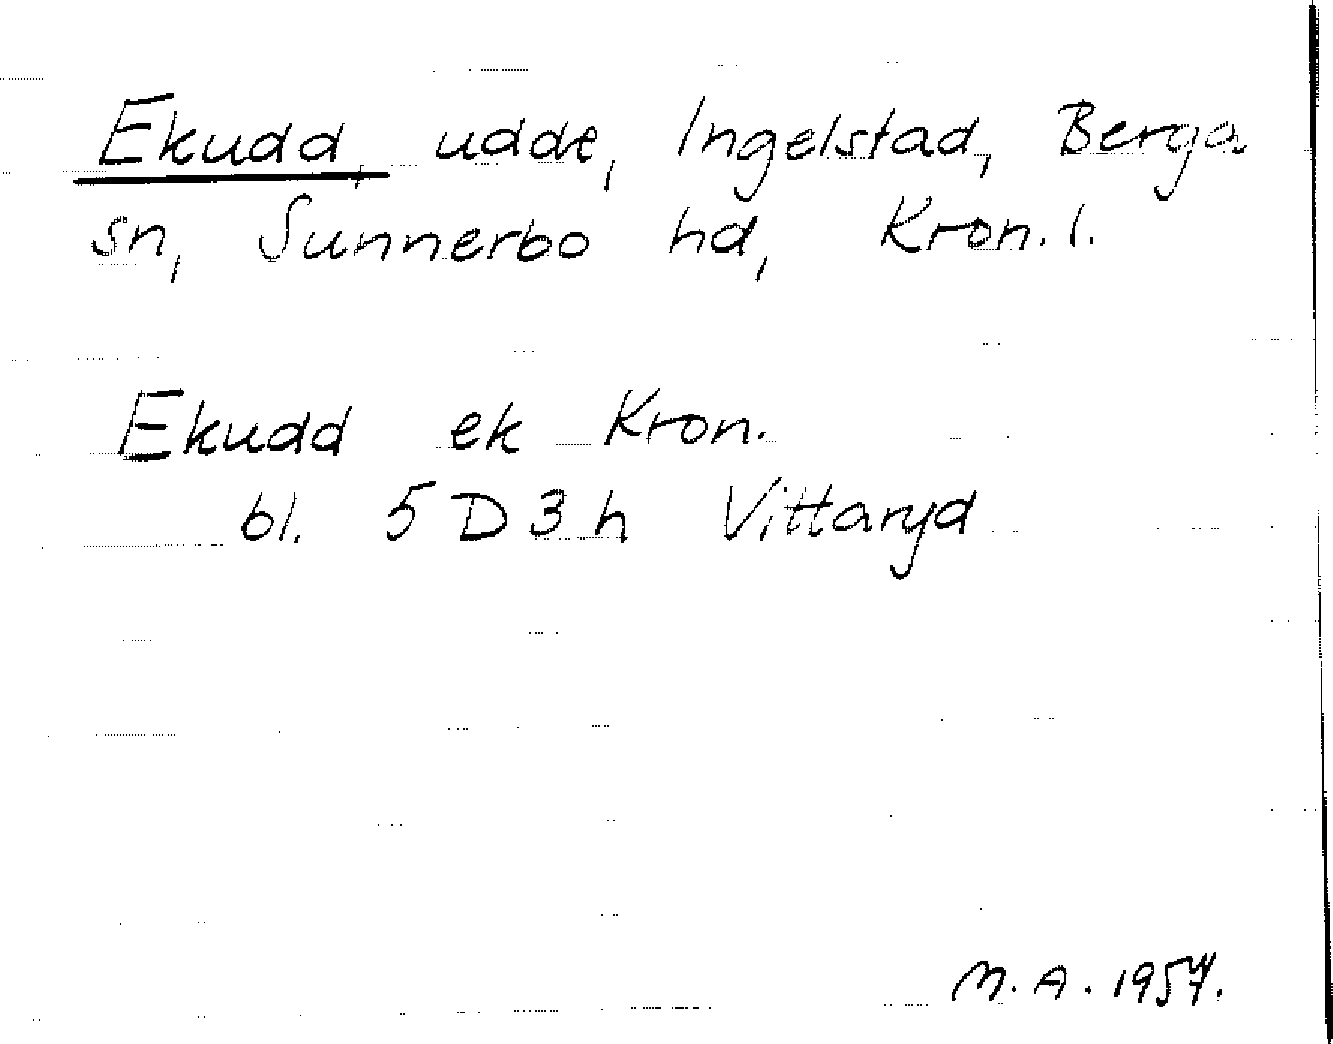 Ekudd, udde, Ingelstad, Berga
sn, Sunnerbo hd, Kron. l.
Ekudd ek Kron.
bl. 5 D 3 h Vittaryd
M. A. 1957.